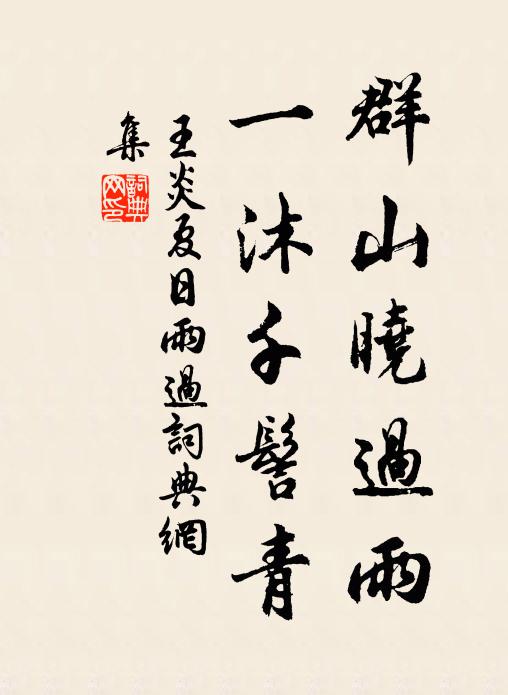 群山曉過雨
一沐千髻青
王炎夏日雨過詞典網
集
詞典
網印